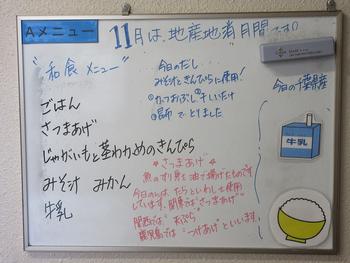 Aメニュー
11月は、地産地消月間です!!
"和食メニュー"
ごはん
さつまあげ
じゃがいもと茎わかめのきんぴら
みそ汁 みかん
牛乳
今日のだし
みそ汁ときんぴらに使用!
かつおぶし 干ししいたけ
昆布でとりました
*さつまあげ*
魚のすり身を油で揚げたものです
今日のは、たらといわしを使用
しています。関東では"さつまあげ"
関西では"天ぷら"
鹿児島では"つけあげ"といいます。
今日の千葉県産
牛乳